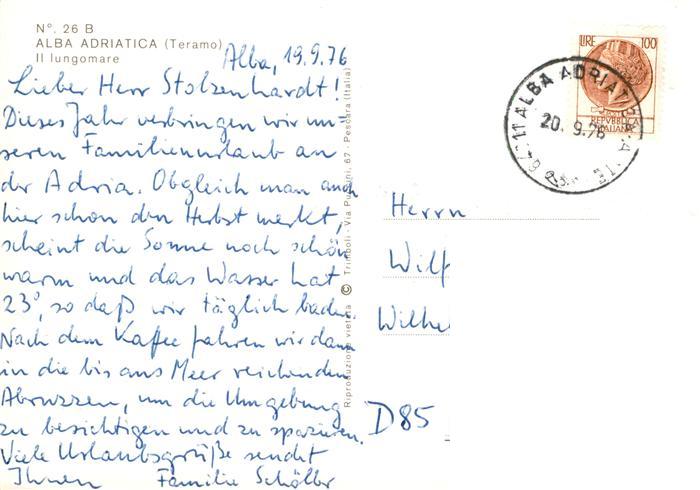 N°. 26 B
ALBA ADRIATICA (Teramo)
Il lungomare
Alba, 19.9.76
Lieber Herr Stolzenhardt!
Dieses Jahr verbringen wir un-
seren Familienurlaub an
der Adria. Obgleich man auch
hier schon den Herbst merkt,
scheint die Sonne noch schön
warm und das Wasser hat
23°, so daß wir täglich baden.
Nach dem Kaffee fahren wir dann
in die bis ans Meer reichenden
Abruzzen, um die Umgebung
zu besichtigen und zu spazieren.
Viele Urlaubsgrüße sendet
Ihnen Familie Schöller
Riproduzione vietata © Trimboli - Via Puccini, 67 - Pescara (Italia)
LIRE 100
REPUBBLICA
ITALIANA
ALBA ADRIATICA
20. 9.76
Herrn
Wilf
Wilhe
D85